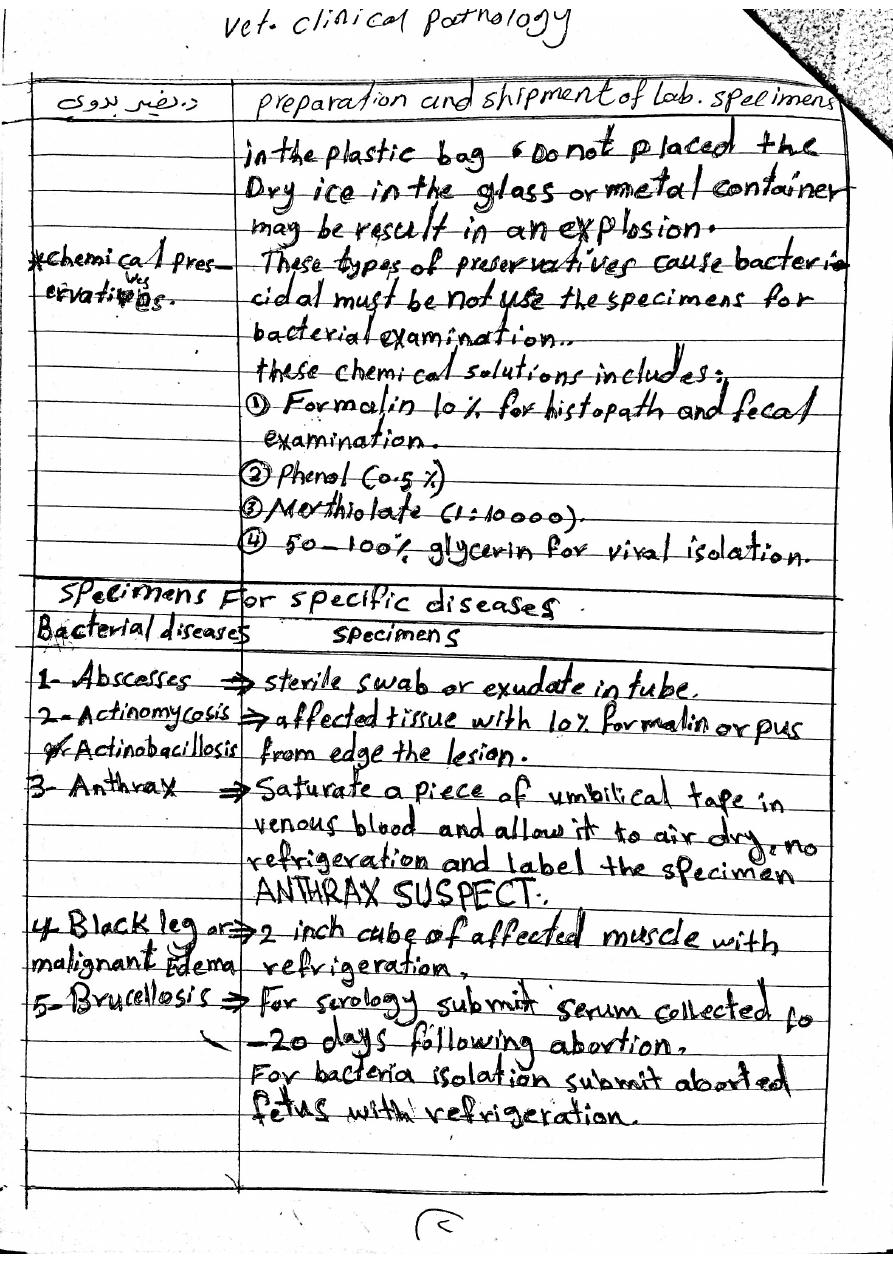 vet. clinical pathology
preparation and shipment of Lab. specimens
in the plastic bag, Do not placed the
Dry ice in the glass or metal container
may be result in an explosion.
*chemical pres- These types of preservatives cause bacteri
ervatives. cidal must be not use the specimens for
bacterial examination..
these chemical solutions includes:
① Formalin 10% for histopath and fecal
examination.
② Phenol (0.5%)
③ Merthiolate (1:10000).
④ 50-100% glycerin for viral isolation.
Specimens For specific diseases.
Bacterial diseases specimens
1- Abscesses ⇒ sterile swab or exudate in tube.
2- Actinomycosis ⇒ affected tissue with 10% formalin or pus
Actinobacillosis from edge the lesion.
3- Anthrax ⇒ Saturate a piece of umbilical tape in
venous blood and allow it to air dry, no
refrigeration and label the specimen
ANTHRAX SUSPECT.
4- Black leg or ⇒ 2 inch cube of affected muscle with
malignant Edema refrigeration,
5- Brucellosis ⇒ For serology submit serum collected to
-20 days following abortion,
For bacteria isolation submit aborted
fetus with refrigeration.